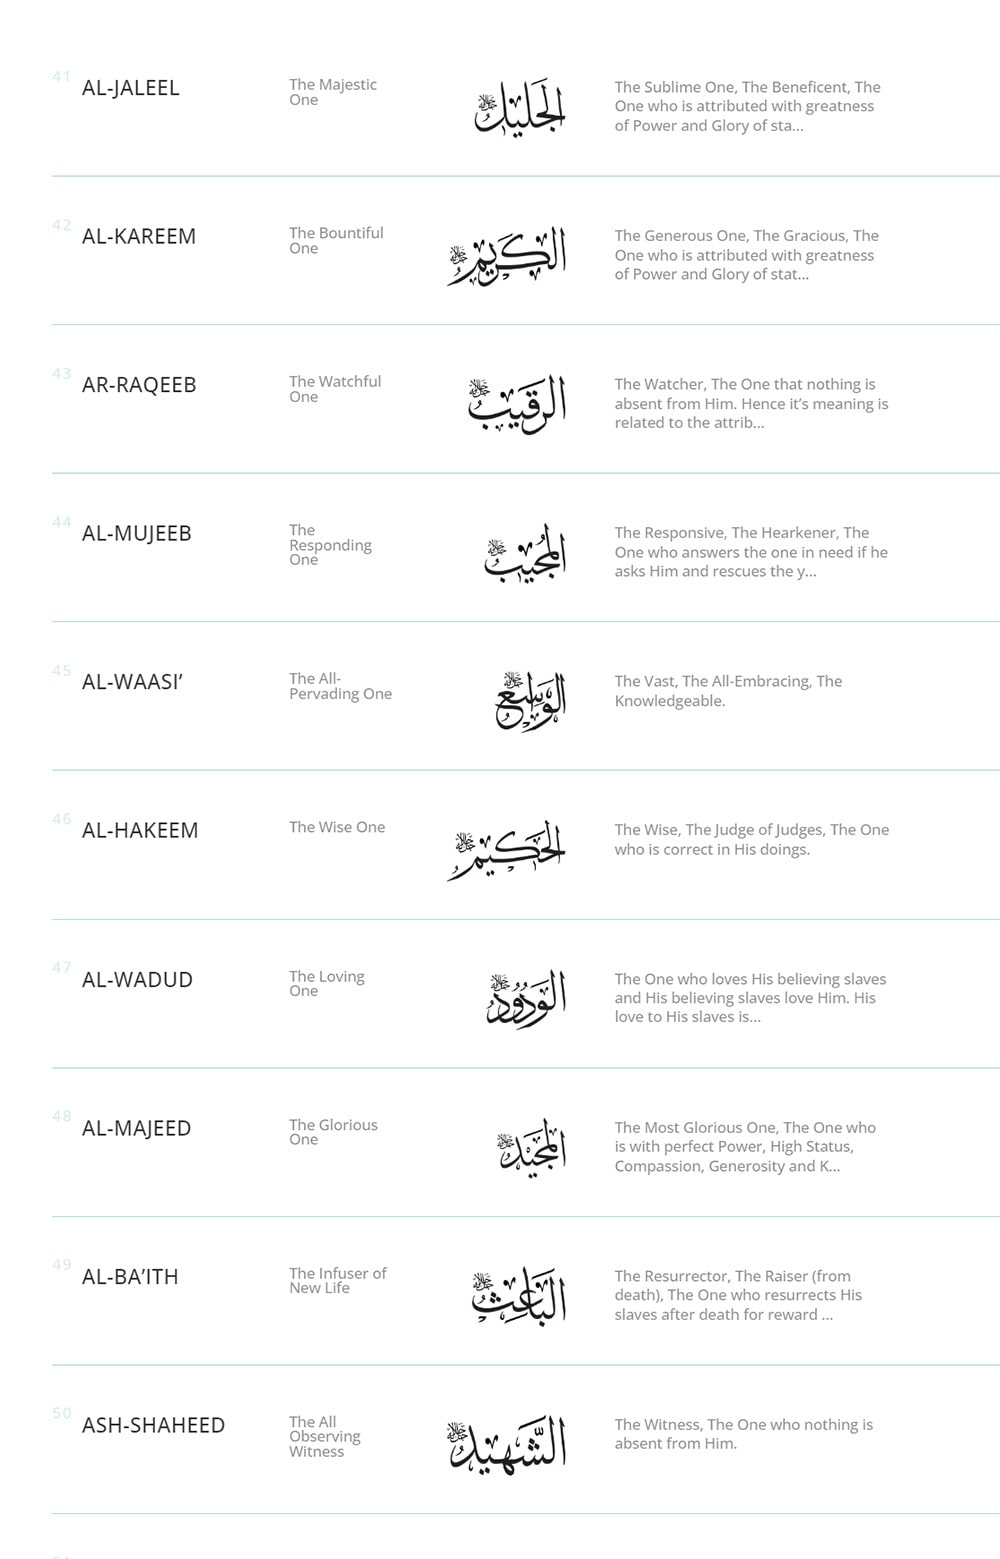 41
AL-JALEEL
The Majestic
One
الجليل
The Sublime One, The Beneficent, The
One who is attributed with greatness
of Power and Glory of sta...
42
AL-KAREEM
The Bountiful
One
الكريم
The Generous One, The Gracious, The
One who is attributed with greatness
of Power and Glory of stat...
43
AR-RAQEEB
The Watchful
One
الرقيب
The Watcher, The One that nothing is
absent from Him. Hence it’s meaning is
related to the attrib...
44
AL-MUJEEB
The
Responding
One
المجيب
The Responsive, The Hearkener, The
One who answers the one in need if he
asks Him and rescues the y...
45
AL-WAASI’
The All-
Pervading One
الواسع
The Vast, The All-Embracing, The
Knowledgeable.
46
AL-HAKEEM
The Wise One
الحكيم
The Wise, The Judge of Judges, The One
who is correct in His doings.
47
AL-WADUD
The Loving
One
الودود
The One who loves His believing slaves
and His believing slaves love Him. His
love to His slaves is...
48
AL-MAJEED
The Glorious
One
المجيد
The Most Glorious One, The One who
is with perfect Power, High Status,
Compassion, Generosity and K...
49
AL-BA’ITH
The Infuser of
New Life
الباعث
The Resurrector, The Raiser (from
death), The One who resurrects His
slaves after death for reward ...
50
ASH-SHAHEED
The All
Observing
Witness
الشهيد
The Witness, The One who nothing is
absent from Him.